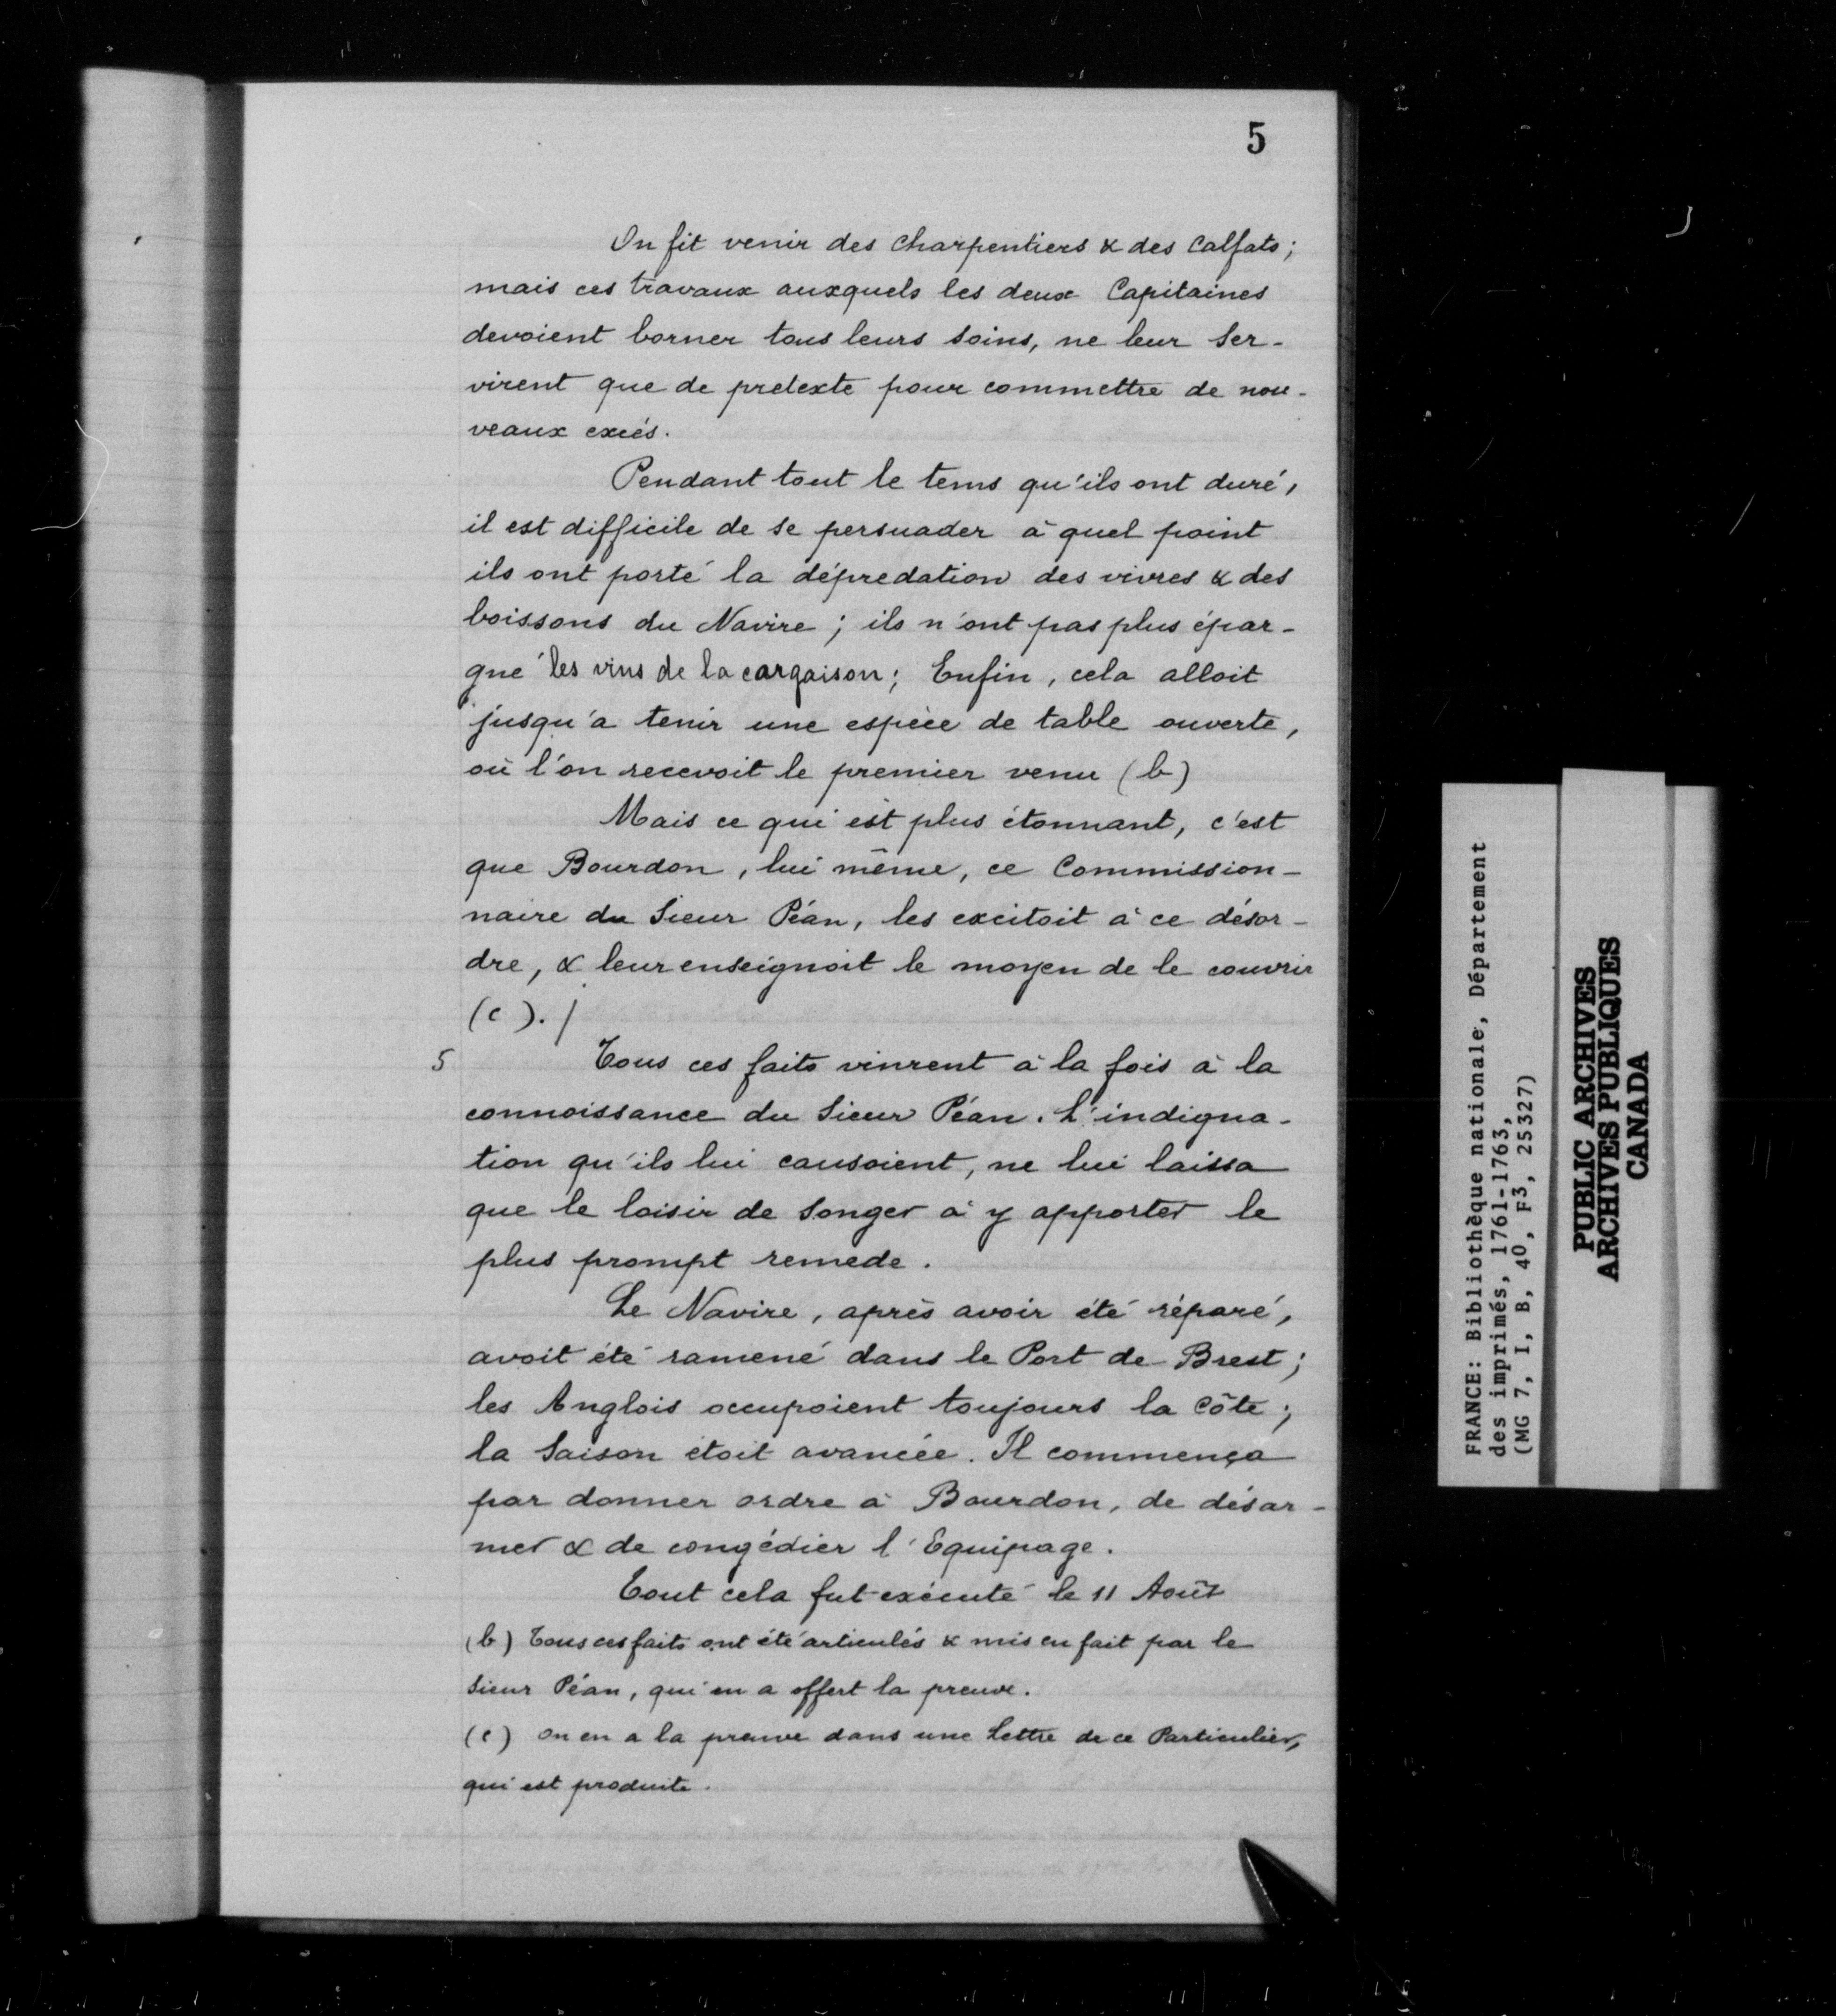 5
On fit venir des charpentiers & des Calfats;
mais ces travaux auxquels les deux Capitaines
devoient borner tous leurs soins, ne leur ser-
virent que de pretexte pour commettre de nou-
veaux excés.
Pendant tout le tems qu'ils ont duré,
il est difficile de se persuader à quel point
ils ont porté la dépredation des vivres & des
boissons du Navire; ils n'ont pas plus épar-
gné les vins de la cargaison; Enfin, cela alloit
jusqu'à tenir une espèce de table ouverte,
où l'on recevoit le premier venu (b)
Mais ce qui est plus étonnant, c'est
que Bourdon, lui même, ce Commission-
naire du Sieur Péan, les excitoit à ce désor-
dre, & leur enseignoit le moyen de le couvrir
(c)./
5 Tous ces faits vinrent à la fois à la
connoissance du Sieur Péan. L'indigna-
tion qu'ils lui causoient, ne lui laissa
que le loisir de songer à y apporter le
plus prompt remede.
Le Navire, après avoir été réparé,
avoit été ramené dans le Port de Brest;
les Anglois occupoient toujours la Côte;
la Saison étoit avancée. Il commença
par donner ordre à Bourdon, de désar-
mer & de congédier l'Equipage.
Tout cela fut exécuté le 11 Août
(b) Tous ces faits ont été articulés & mis en fait par le
Sieur Péan, qui en a offert la preuve.
(c) On en a la preuve dans une Lettre de ce Particulier,
qui est produite.
FRANCE: Bibliothèque nationale, Département
des imprimés, 1761-1763,
(MG 7, I, B, 40, F3, 25327)
PUBLIC ARCHIVES
ARCHIVES PUBLIQUES
CANADA